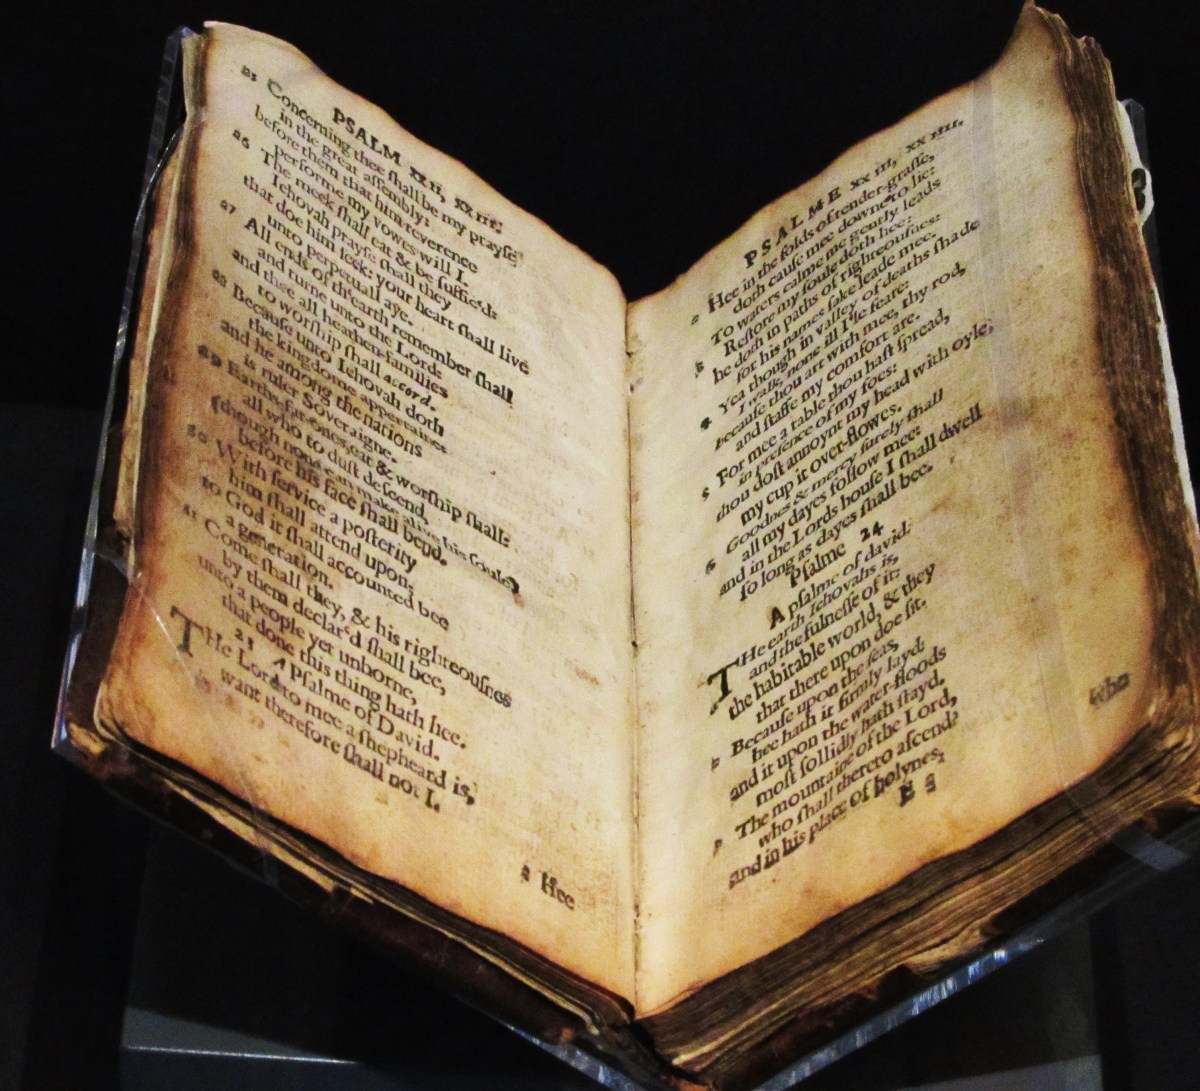 PSALM xxII, xxIII.
25 Concerning thee shall be my prayse
in the great assembly:
before them that him reverence
performe my vowes will I.
26 The meek shall eat & be suffic'd:
Iehovah prayse shall they
that doe him seek: your heart shall live
unto perpetuall aye.
27 All ends of th'earth remember shall
and turne unto the Lord:
and thee all heathen-families
to worship shall accord.
28 Because unto Iehovah doth
the kingdome appertaine:
and he among the nations
is ruler Soveraigne.
29 Earths-fat-ones, eat & worship shall:
all who to dust descend,
(though none can make alive his soule)
before his face shall bend.
30 With service a posterity
him shall attend upon;
to God it shall accounted bee
a generation.
31 Come shall they, & his righteousnes
by them declar'd shall bee,
unto a people yet unborne,
that done this thing hath hee.
23 A Psalme of David.
THe Lord to mee a shepheard is,
want therefore shall not I.
2 Hee
PSALME xx III, xx IIII.
2 Hee in the folds of tender-grasse,
doth cause mee downe to lie:
To waters calme me gently leads
3 Restore my soule doth hee:
he doth in paths of righteousnes:
for his names sake leade mee.
4 Yea though in valley of deaths shade
I walk, none ill I'le feare:
because thou art with mee, thy rod,
and staffe my comfort are.
5 For mee a table thou hast spread,
in presence of my foes:
thou dost annoynt my head with oyle,
my cup it over-flowes.
6 Goodnes & mercy surely shall
all my dayes follow mee:
and in the Lords house I shall dwell
so long as dayes shall bee.
Psalme 24
A psalme of david.
THe earth Iehovahs is,
and the fulnesse of it:
the habitable world, & they
that there upon doe sit.
2 Because upon the seas,
hee hath it firmly layd:
and it upon the water-floods
most sollidly hath stayd.
3 The mountaine of the Lord,
who shall thereto ascend?
and in his place of holynes,
E 3